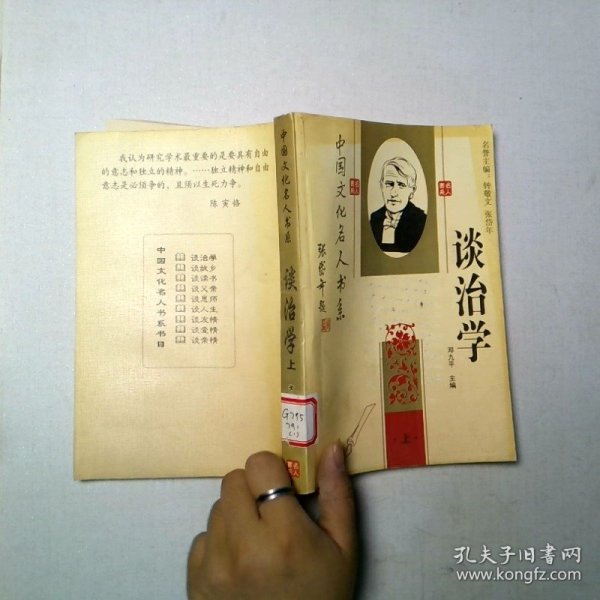 我认为研究学术最重要的是要具有自由
的意志和独立的精神。……独立精神和自由
意志是必须争的，且须以生死力争。
陈寅恪
中国文化名人书系书目
谈治学
谈故乡
谈读书
谈父亲
谈恩师
谈人生
谈友情
谈爱情
谈亲情
中国文化名人书系
谈治学
上
G795
791
C1)
名人
中国文化名人书系
张岱年题
名人
名誉主编：钟敬文 张岱年
谈治学
邓九平 主编
·上·
孔夫子旧书网
www.kongfz.com